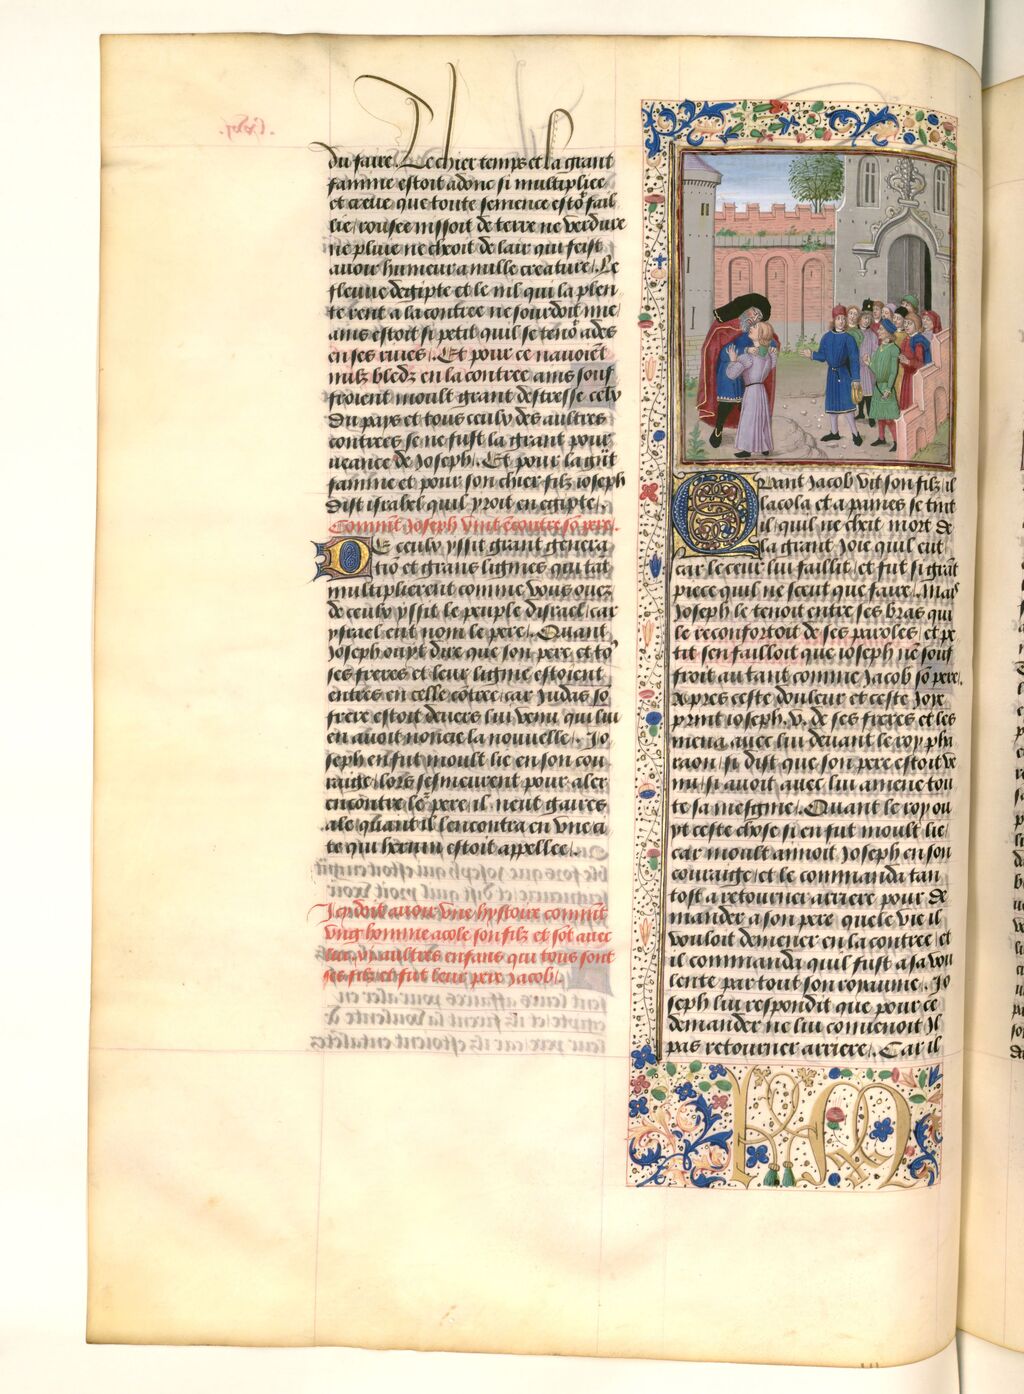 du faire. Le chier temps et la grant
famine estoit adonc si multipliee
et creue que toute semence estoit fail
lie / rousee nissoit de terre ne verdure
ne pluie ne cheoit de lair qui feist
auoir humeur a nulle creature / Le
fleuue degipte et le nil qui la plen
te rent a la contree ne sourdoit mie /
ains estoit si petit quil se tenoit ades
en ses riues /. Et pour ce nauoient
nulz bledz en la contree ains souf
froient moult grant destresse ceulx
du pays et tous ceulx des aultres
contrees se ne fust la grant pour
ueance de Joseph /. Et pour la grant
famine et pour son chier filz ioseph
dist israhel quil yroit en egipte /.
Comment Joseph vint encontre son pere /.
De ceulx yssit grant genera
tion et grans lignies qui tant
multiplierent comme vous ouez
de ceulx yssit le peuple disrael / car
ysrael eut nom le pere /. Quant
Joseph oupt dire que son pere et tous
ses freres et leur lignie estoient
entres en celle contree / car Judas son
frere estoit deuers lui venu qui lui
en auoit noncie la nouuelle /. Jo
seph en fut moult lie en son cou
raige / lors sesmeurent pour aler
encontre le pere / il neut gaires
ale quant il lencontra en vne ci
te qui hernin estoit appellee /.
Icy doit auoir vne hystoire comment
vng homme acole son filz et sont auec
lui vi aultres enfans qui tous sont
ses filz et fut leur pere Jacob /.
Quant Jacob vit son filz / il
lacola et a paines se tint
il / quil ne cheit mort de
la grant Joie quil eut
car le ceur lui faillit / et fut si grant
piece quil ne sceut que faire /. Mais
Joseph le tenoit entre ses bras qui
le reconfortoit de ses paroles / et pe
tit sen failloit que ioseph ne souf
froit autant comme Jacob son pere /.
Apres ceste douleur et ceste Joye
print ioseph .v. de ses freres et les
mena auec lui deuant le roy pha
raon / si dist que son pere estoit ve
nu / si auoit auec lui amene tou
te sa mesgnie /. Quant le roy ou
yt ceste chose si en fut moult lie /
car moult amoit Joseph en son
couraige / et le commanda tan
tost a retourner arriere pour de
mander a son pere quele vie il
vouloit demener en la contree / et
il commanda quil fust a sa vou
lente par tout son royaume /. Jo
seph lui respondit que pour ce
demander ne lui conuenoit Jl
pas retourner arriere /. Car il